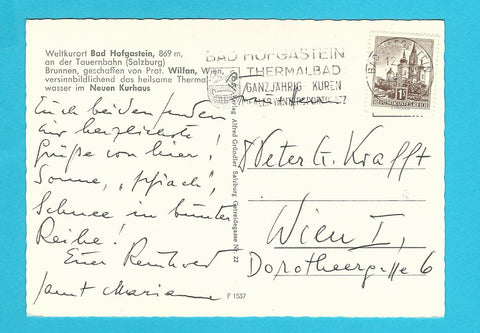 Weltkurort Bad Hofgastein, 869 m,
an der Tauernbahn (Salzburg)
Brunnen, geschaffen von Prof. Wilfan, Wien,
versinnbildlichend das heilsame Thermal-
wasser im Neuen Kurhaus
BAD HOFGASTEIN
THERMALBAD
GANZJÄHRIG KUREN
IDEALER WINTERSPORTPLATZ
REPUBLIK ÖSTERREICH
Euch beiden senden
wir herzlichste
Grüße von hier!
Sonne,
Schnee in bunter
Reihe!
Euer Reinhold
samt Marianne
Verlag Alfred Gründler Salzburg Getreidegasse Nr. 22
Peter G. Krafft
Wien I,
Dorotheergasse 6
F 1537